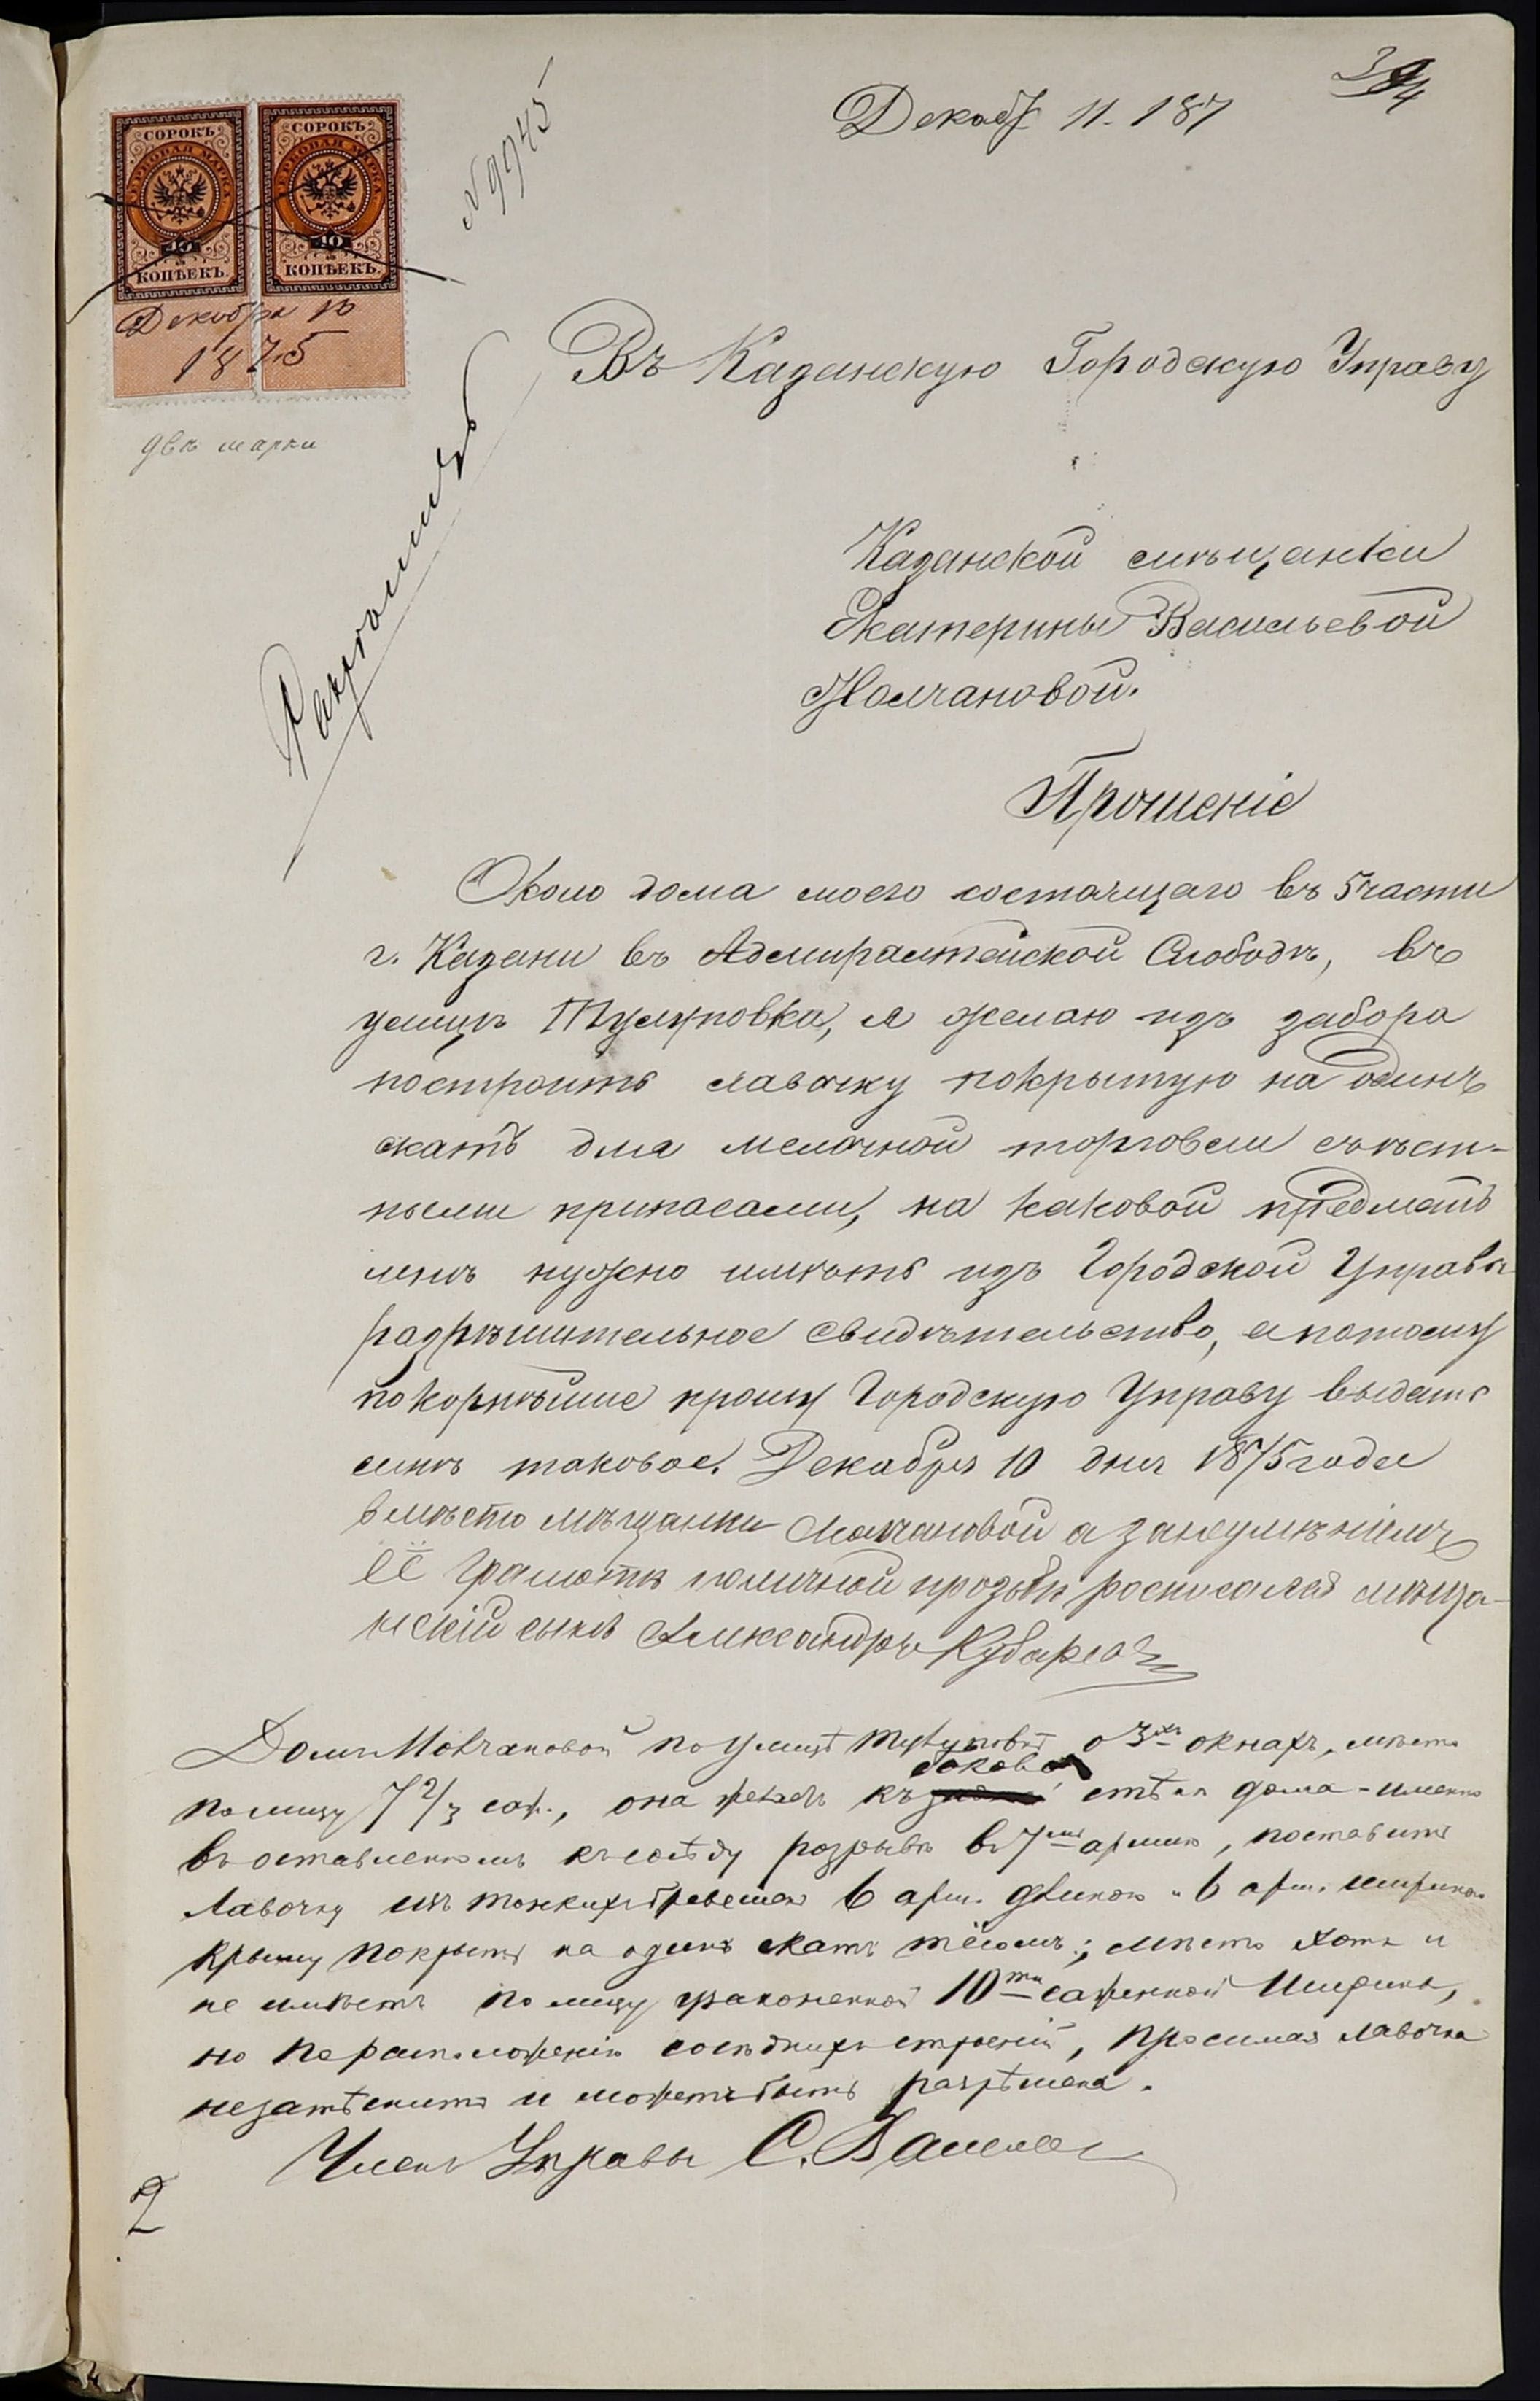 394
Декабр 11. 187
N 9945
СОРОКЪ СОРОКЪ
ГЕРБОВАЯ МАРКА ГЕРБОВАЯ МАРКА
40 40
КОПѢЕКЪ. КОПѢЕКЪ.
Декабря 10
1875
двѣ марки
Въ Казанскую Городскую Управу
Казанской мѣщанки
Екатерины Васильевой
Молчановой.
Прошеніе
Около дома моего состоящаго въ 5 части
г. Казани въ Адмиралтейской Слободѣ, въ
улицѣ Тулуповка, я желаю изъ забора
построить лавочку покрытую на одинъ
скатъ для мелочной торговли съѣст-
ными припасами, на каковой предметъ
мнѣ нужно имѣть изъ Городской Управы
разрѣшительное свидѣтельство, а потому
покорнѣйше прошу Городскую Управу выдать
мнѣ таковое. Декабря 10 дня 1875 года
вместо мѣщанки Молчановой а за неумѣніемъ
её грамотѣ поличной прозьбѣ росписался мѣща-
нскій сынъ Александръ Кубарев
Домъ Молчановой по улицѣ Тулуповкѣ о 3хъ окнахъ, место
по лицу 7 2/3 саж., она желаетъ къ боковой стѣнѣ дома - именно
въ оставленномъ къ соседу розрывѣ въ 7мь аршин, поставить
лавочку изъ тонкихъ бревешек 6 арш. длиною и 6 арш. шириною
крышу покрыть на одинъ скатъ тёсомъ; место хотя и
не имѣетъ по лицу узаконенной 10ти саженной ширины,
но по расположенію соседнихъ строеній, просимая лавочка
незатѣснитъ и можетъ быть разрѣшена.
Членъ Управы С.
2